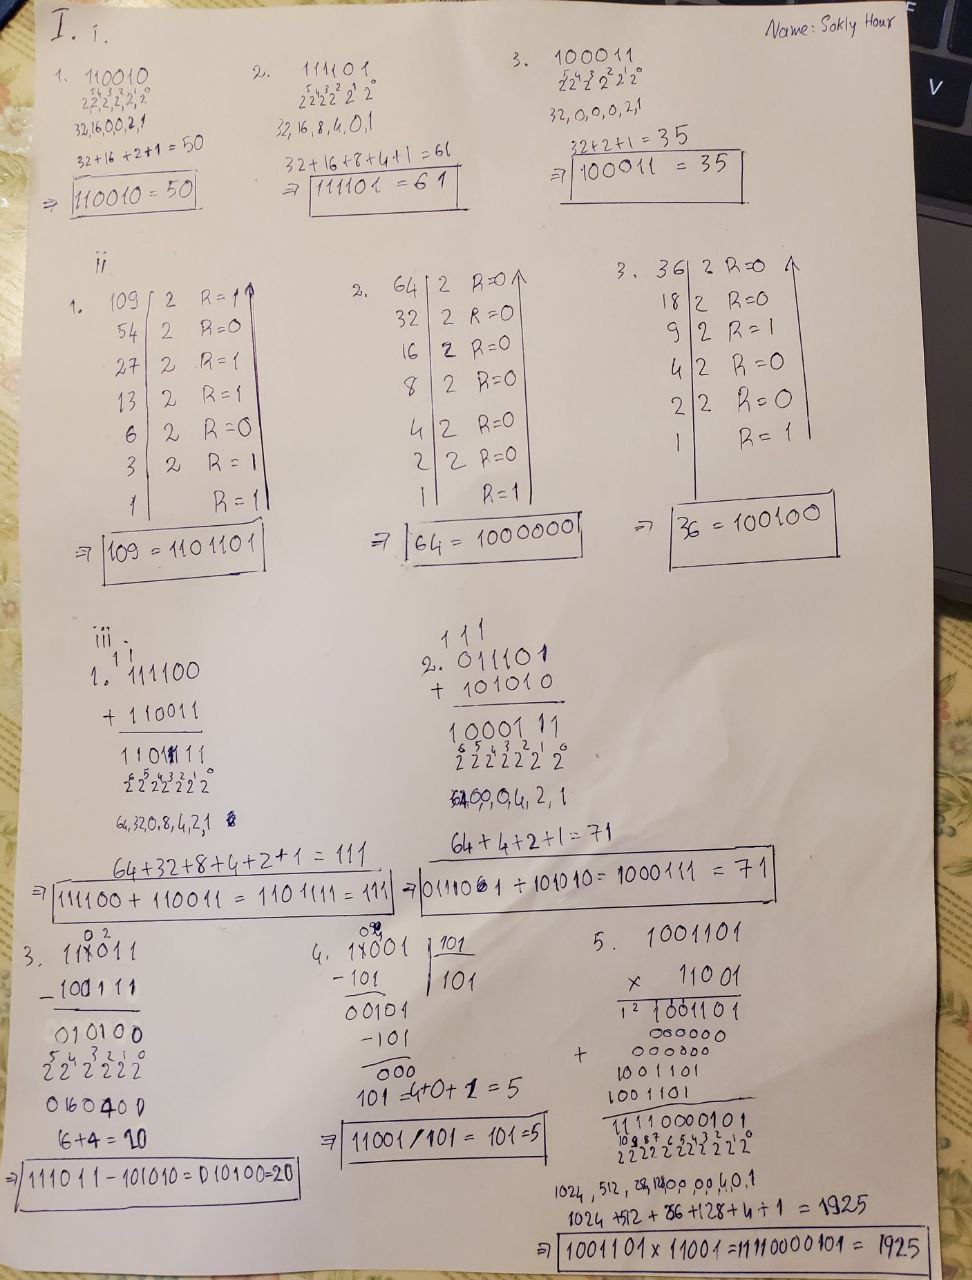 I. i.
Name: Sokly Hour
1. 110010
2⁵2⁴2³2²2¹2⁰
32,16,0,0,2,1
32+16+2+1=50
⇒ 110010=50
2. 111101
2⁵2⁴2³2²2¹2⁰
32,16,8,4,0,1
32+16+8+4+1=61
⇒ 111101=61
3. 100011
2⁵2⁴2³2²2¹2⁰
32,0,0,0,2,1
32+2+1=35
⇒ 100011 = 35
ii
1. 109 2 R=1
54 2 R=0
27 2 R=1
13 2 R=1
6 2 R=0
3 2 R=1
1 R=1
⇒ 109=1101101
2. 64 2 R=0
32 2 R=0
16 2 R=0
8 2 R=0
4 2 R=0
2 2 R=0
1 R=1
⇒ 64=1000000
3. 36 2 R=0
18 2 R=0
9 2 R=1
4 2 R=0
2 2 R=0
1 R=1
⇒ 36=100100
iii.
1 1
1. 111100
+ 110011
1101111
2⁶2⁵2⁴2³2²2¹2⁰
64,32,0,8,4,2,1
64+32+8+4+2+1=111
⇒ 111100+110011=1101111=111
1 1 1
2. 011101
+ 101010
1000111
2⁶2⁵2⁴2³2²2¹2⁰
0,0,4,2,1
64+4+2+1=71
+101010=1000111=71
0 2
3. 111011
- 100111
010100
2⁵2⁴2³2²2¹2⁰
0 16 0 4 0 0
16+4=20
⇒ 111011-101010=010100=20
4. 11001 101
-101 101
00101
-101
000
101=4+0+1=5
⇒ 11001/101=101=5
5. 1001101
× 11001
1 2 1001101
000000
+ 000000
1001101
1001101
11110000101
2¹⁰2⁹2⁸2⁷2⁶2⁵2⁴2³2²2¹2⁰
1024,512,
1024+512+256+128+4+1=1925
⇒ 1001101×11001=11110000101=1925